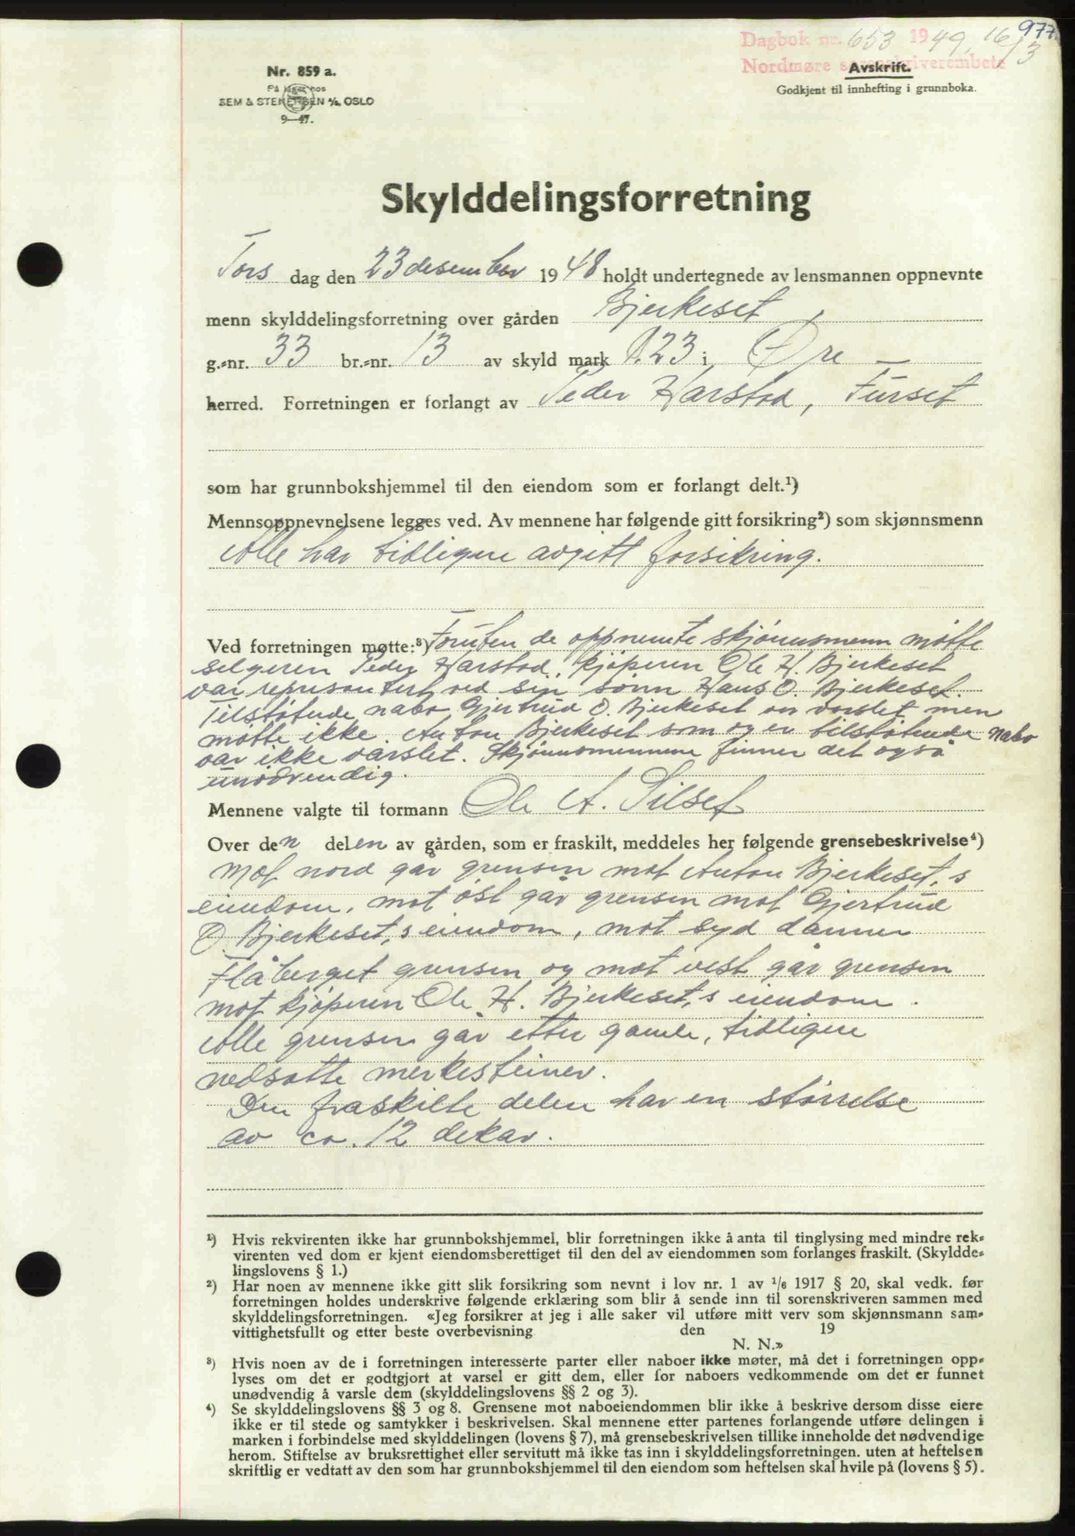 977
Dagbok nr. 653 1949, 16/3
Nordmøre sorenskriverembete
Nr. 859 a.
På lager hos
SEM & STENERSEN A/S, OSLO
9—47.
Avskrift.
Godkjent til innhefting i grunnboka.
Skylddelingsforretning
Tors dag den 23 desember 1948 holdt undertegnede av lensmannen oppnevnte
menn skylddelingsforretning over gården Bjerkeset,
g.-nr. 33 br.-nr. 13 av skyld mark 1.23 i Øre —
herred. Forretningen er forlangt av Peder Harstad, Furset
som har grunnbokshjemmel til den eiendom som er forlangt delt.¹)
Mennsoppnevnelsene legges ved. Av mennene har følgende gitt forsikring²) som skjønnsmenn
Alle har tidligere avgitt forsikring.
Ved forretningen møtte:³) Foruten de oppnevnte skjønnsmenn møtte
selgeren Peder Harstad, kjøperen Ole H. Bjerkeset
var representert ved sin sønn Hans O. Bjerkeset.
Tilstøtende nabo Gjertrud O. Bjerkeset er varslet, men
møtte ikke. Anton Bjerkeset som og er tilstøtende nabo
var ikke varslet. Skjønnsmennene finner det også
unødvendig.
Mennene valgte til formann Ole A. Silset
Over den delen av gården, som er fraskilt, meddeles her følgende grensebeskrivelse⁴)
Mot nord går grensen mot Anton Bjerkeset,s
eiendom, mot øst går grensen mot Gjertrud
O. Bjerkeset,s eiendom, mot syd danner
Flåberget grensen og mot vest går grensen
mot kjøperen Ole H. Bjerkeset,s eiendom.
Alle grenser går etter gamle, tidligere
nedsatte merkesteiner.
Den fraskilte delen har en størrelse
av ca. 12 dekar.
¹) Hvis rekvirenten ikke har grunnbokshjemmel, blir forretningen ikke å anta til tinglysing med mindre rek-
virenten ved dom er kjent eiendomsberettiget til den del av eiendommen som forlanges fraskilt. (Skyldde-
lingslovens § 1.)
²) Har noen av mennene ikke gitt slik forsikring som nevnt i lov nr. 1 av 1/6 1917 § 20, skal vedk. før
forretningen holdes underskrive følgende erklæring som blir å sende inn til sorenskriveren sammen med
skylddelingsforretningen. «Jeg forsikrer at jeg i alle saker vil utføre mitt verv som skjønnsmann sam-
vittighetsfullt og etter beste overbevisning den 19
N. N.»
³) Hvis noen av de i forretningen interesserte parter eller naboer ikke møter, må det i forretningen opp-
lyses om det er godtgjort at varsel er gitt dem, eller for naboers vedkommende om det er funnet
unødvendig å varsle dem (skylddelingslovens §§ 2 og 3).
⁴) Se skylddelingslovens §§ 3 og 8. Grensene mot naboeiendommen blir ikke å beskrive dersom disse eiere
ikke er til stede og samtykker i beskrivelsen. Skal mennene etter partenes forlangende utføre delingen i
marken i forbindelse med skylddelingen (lovens § 7), må grensebeskrivelsen tillike inneholde det nødvendige
herom. Stiftelse av bruksrettighet eller servitutt må ikke tas inn i skylddelingsforretningen. uten at heftelsen
skriftlig er vedtatt av den som har grunnbokshjemmel til den eiendom som heftelsen skal hvile på (lovens § 5).